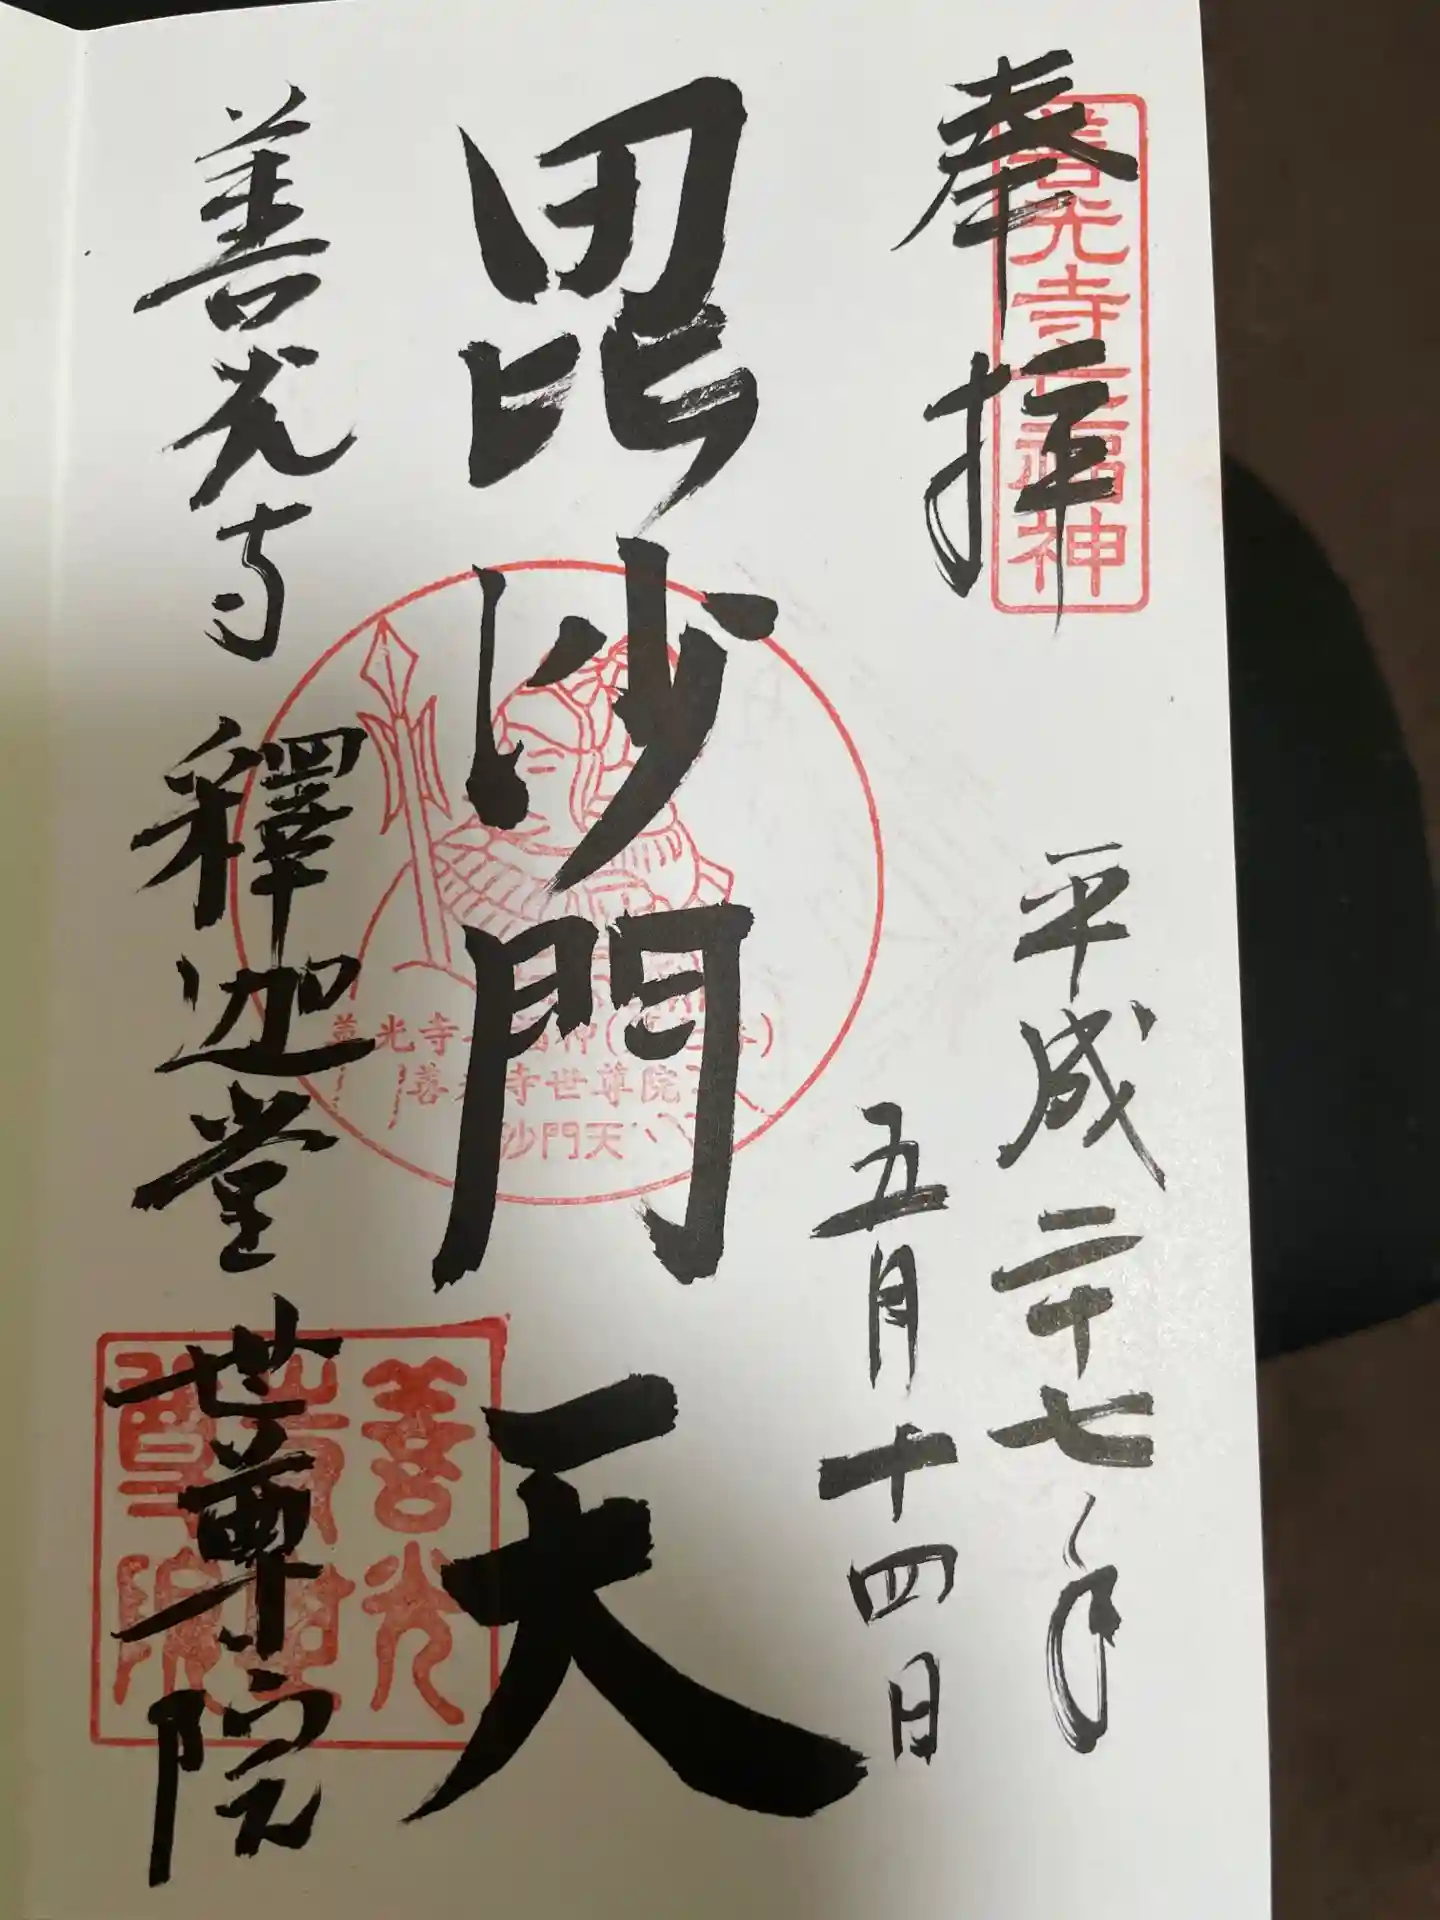 奉拝
善光寺七福神
平成二十七年
五月十四日
毘沙門天
善光寺
善光寺世尊院
沙門天
善光寺 釋迦堂 世尊院
善光
尊院